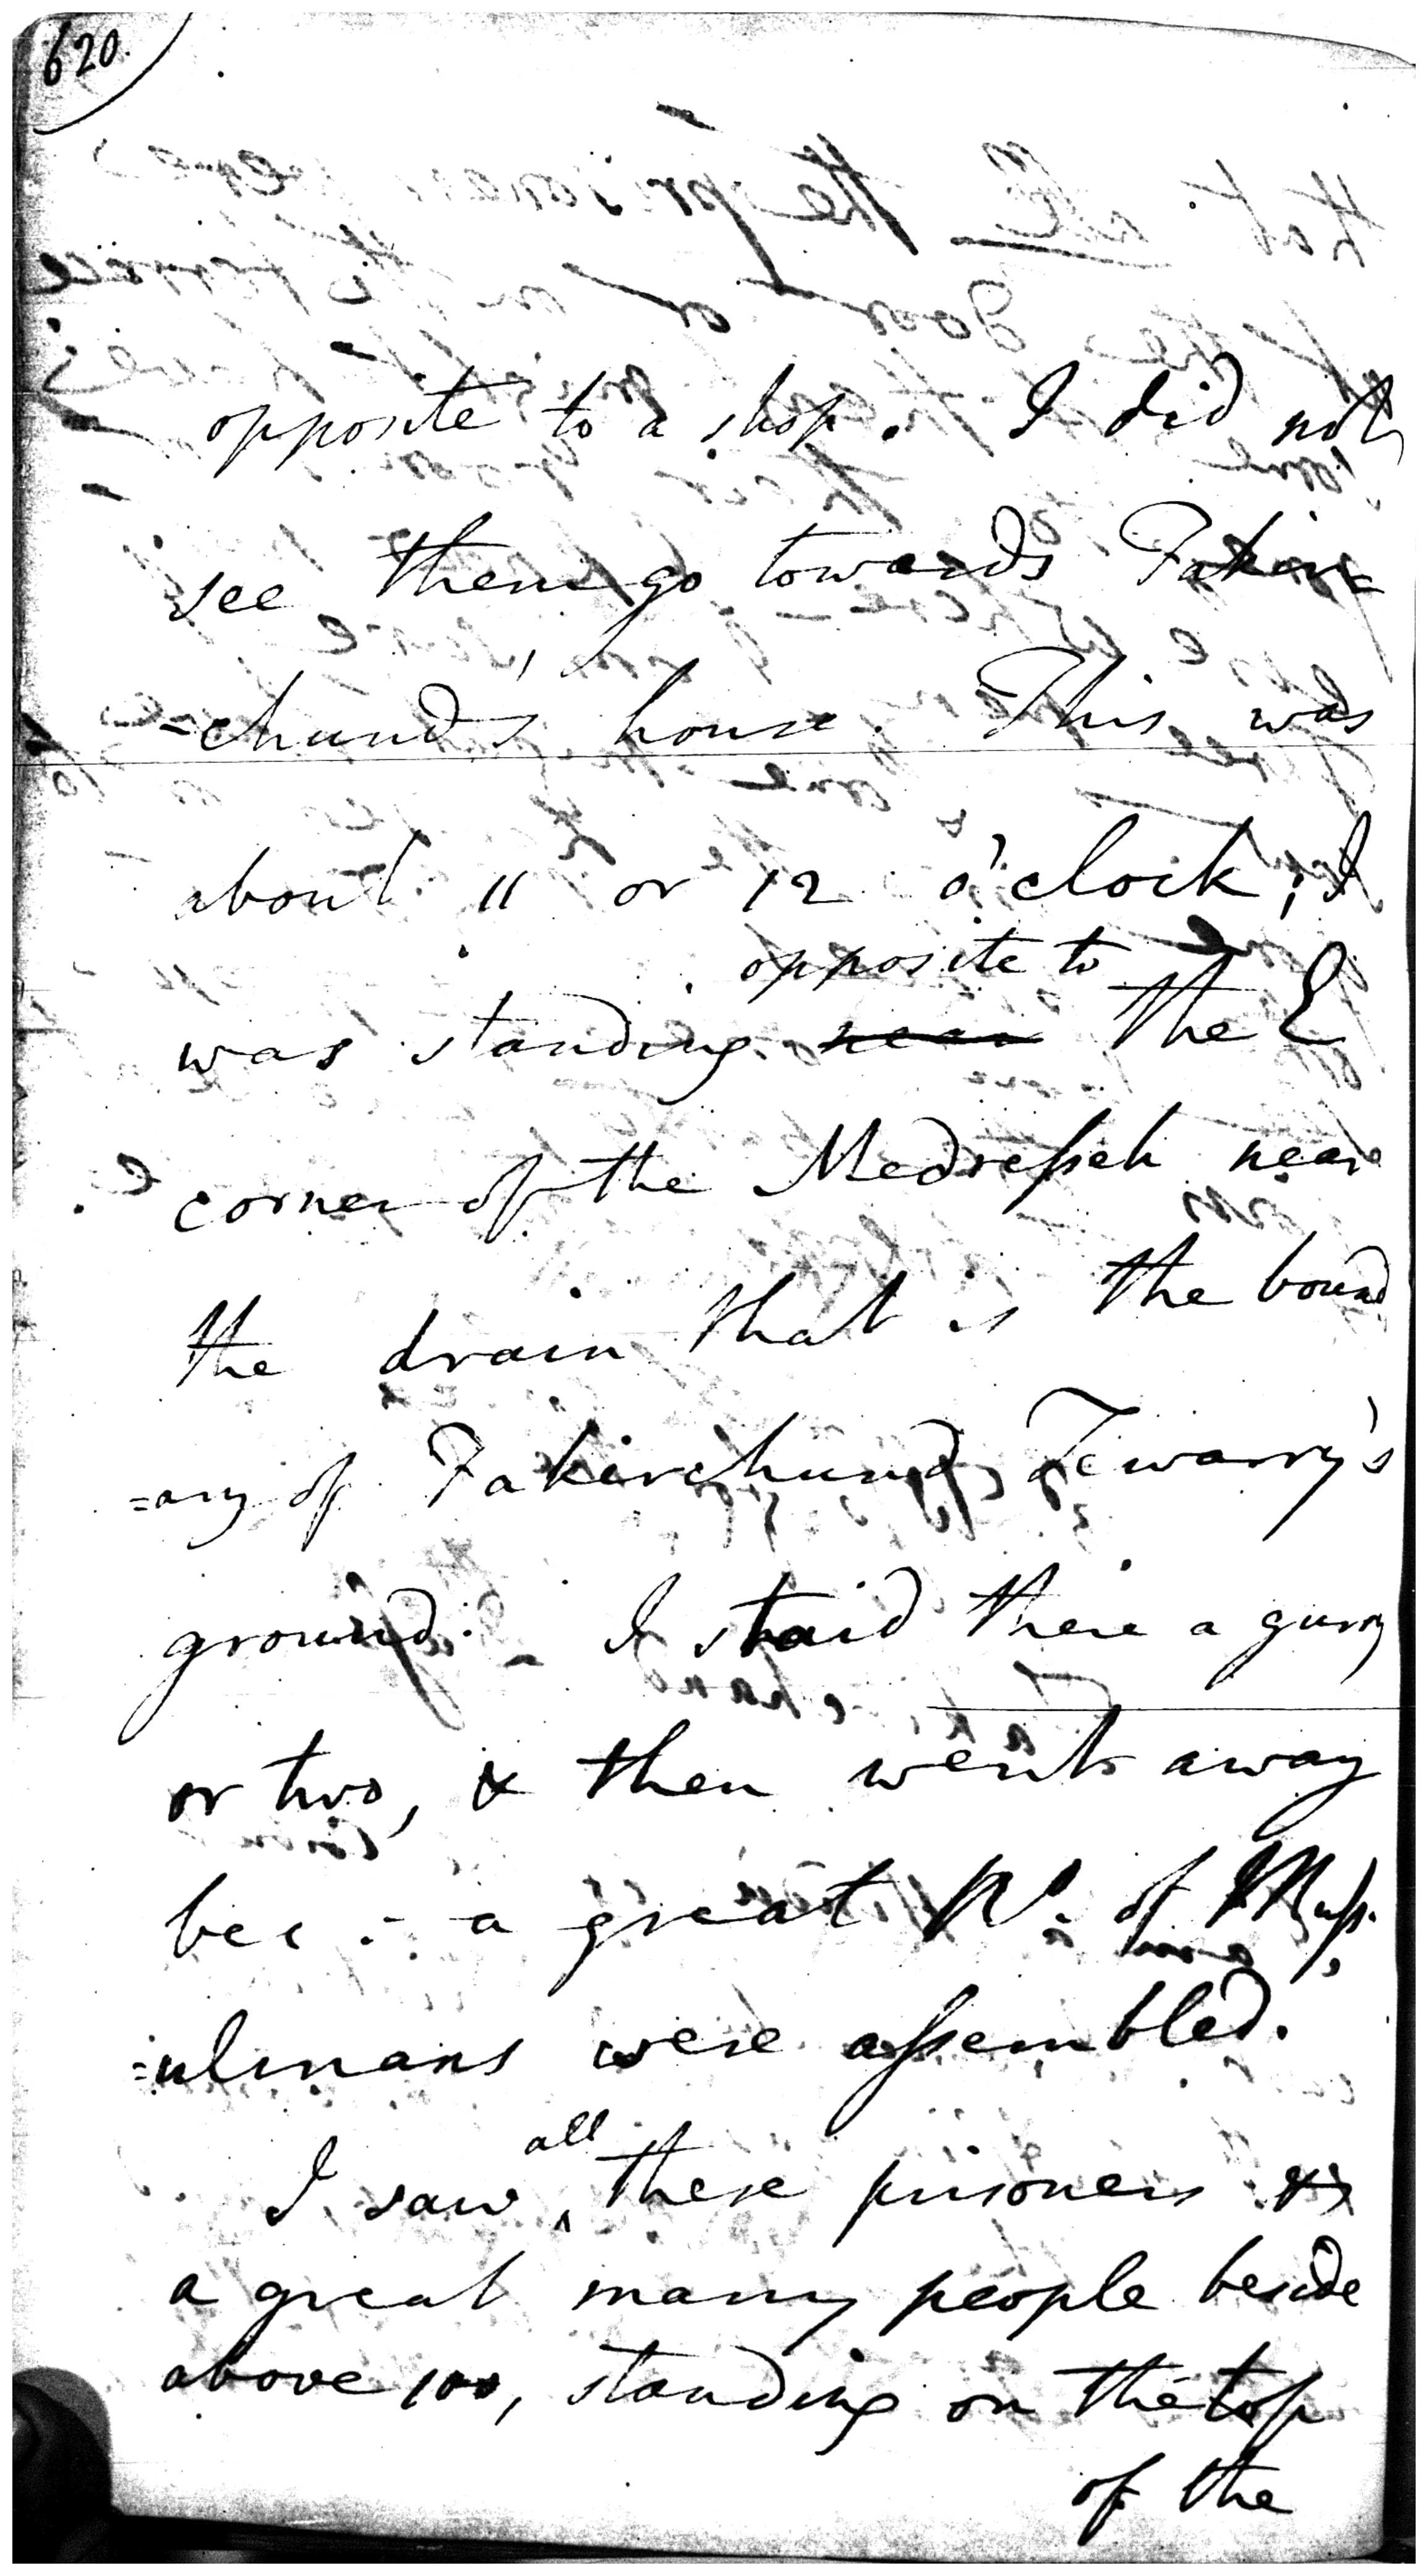 620.
opposite to a shop. I did not
see them go towards Fakir=
=chund's house. This was
about 11 or 12 o'clock; I
opposite to
was standing near the E
corner of the Medresseh near
the drain that is the bound
=ary of Fakirchund Tewarry's
ground. I staid there a gurry
or two, & then went away
bec:- a great No. of Muss.
=ulmans were assembled.
all
I saw ^ these prisoners &
a great many people beside
above 100, standing on the top
of the